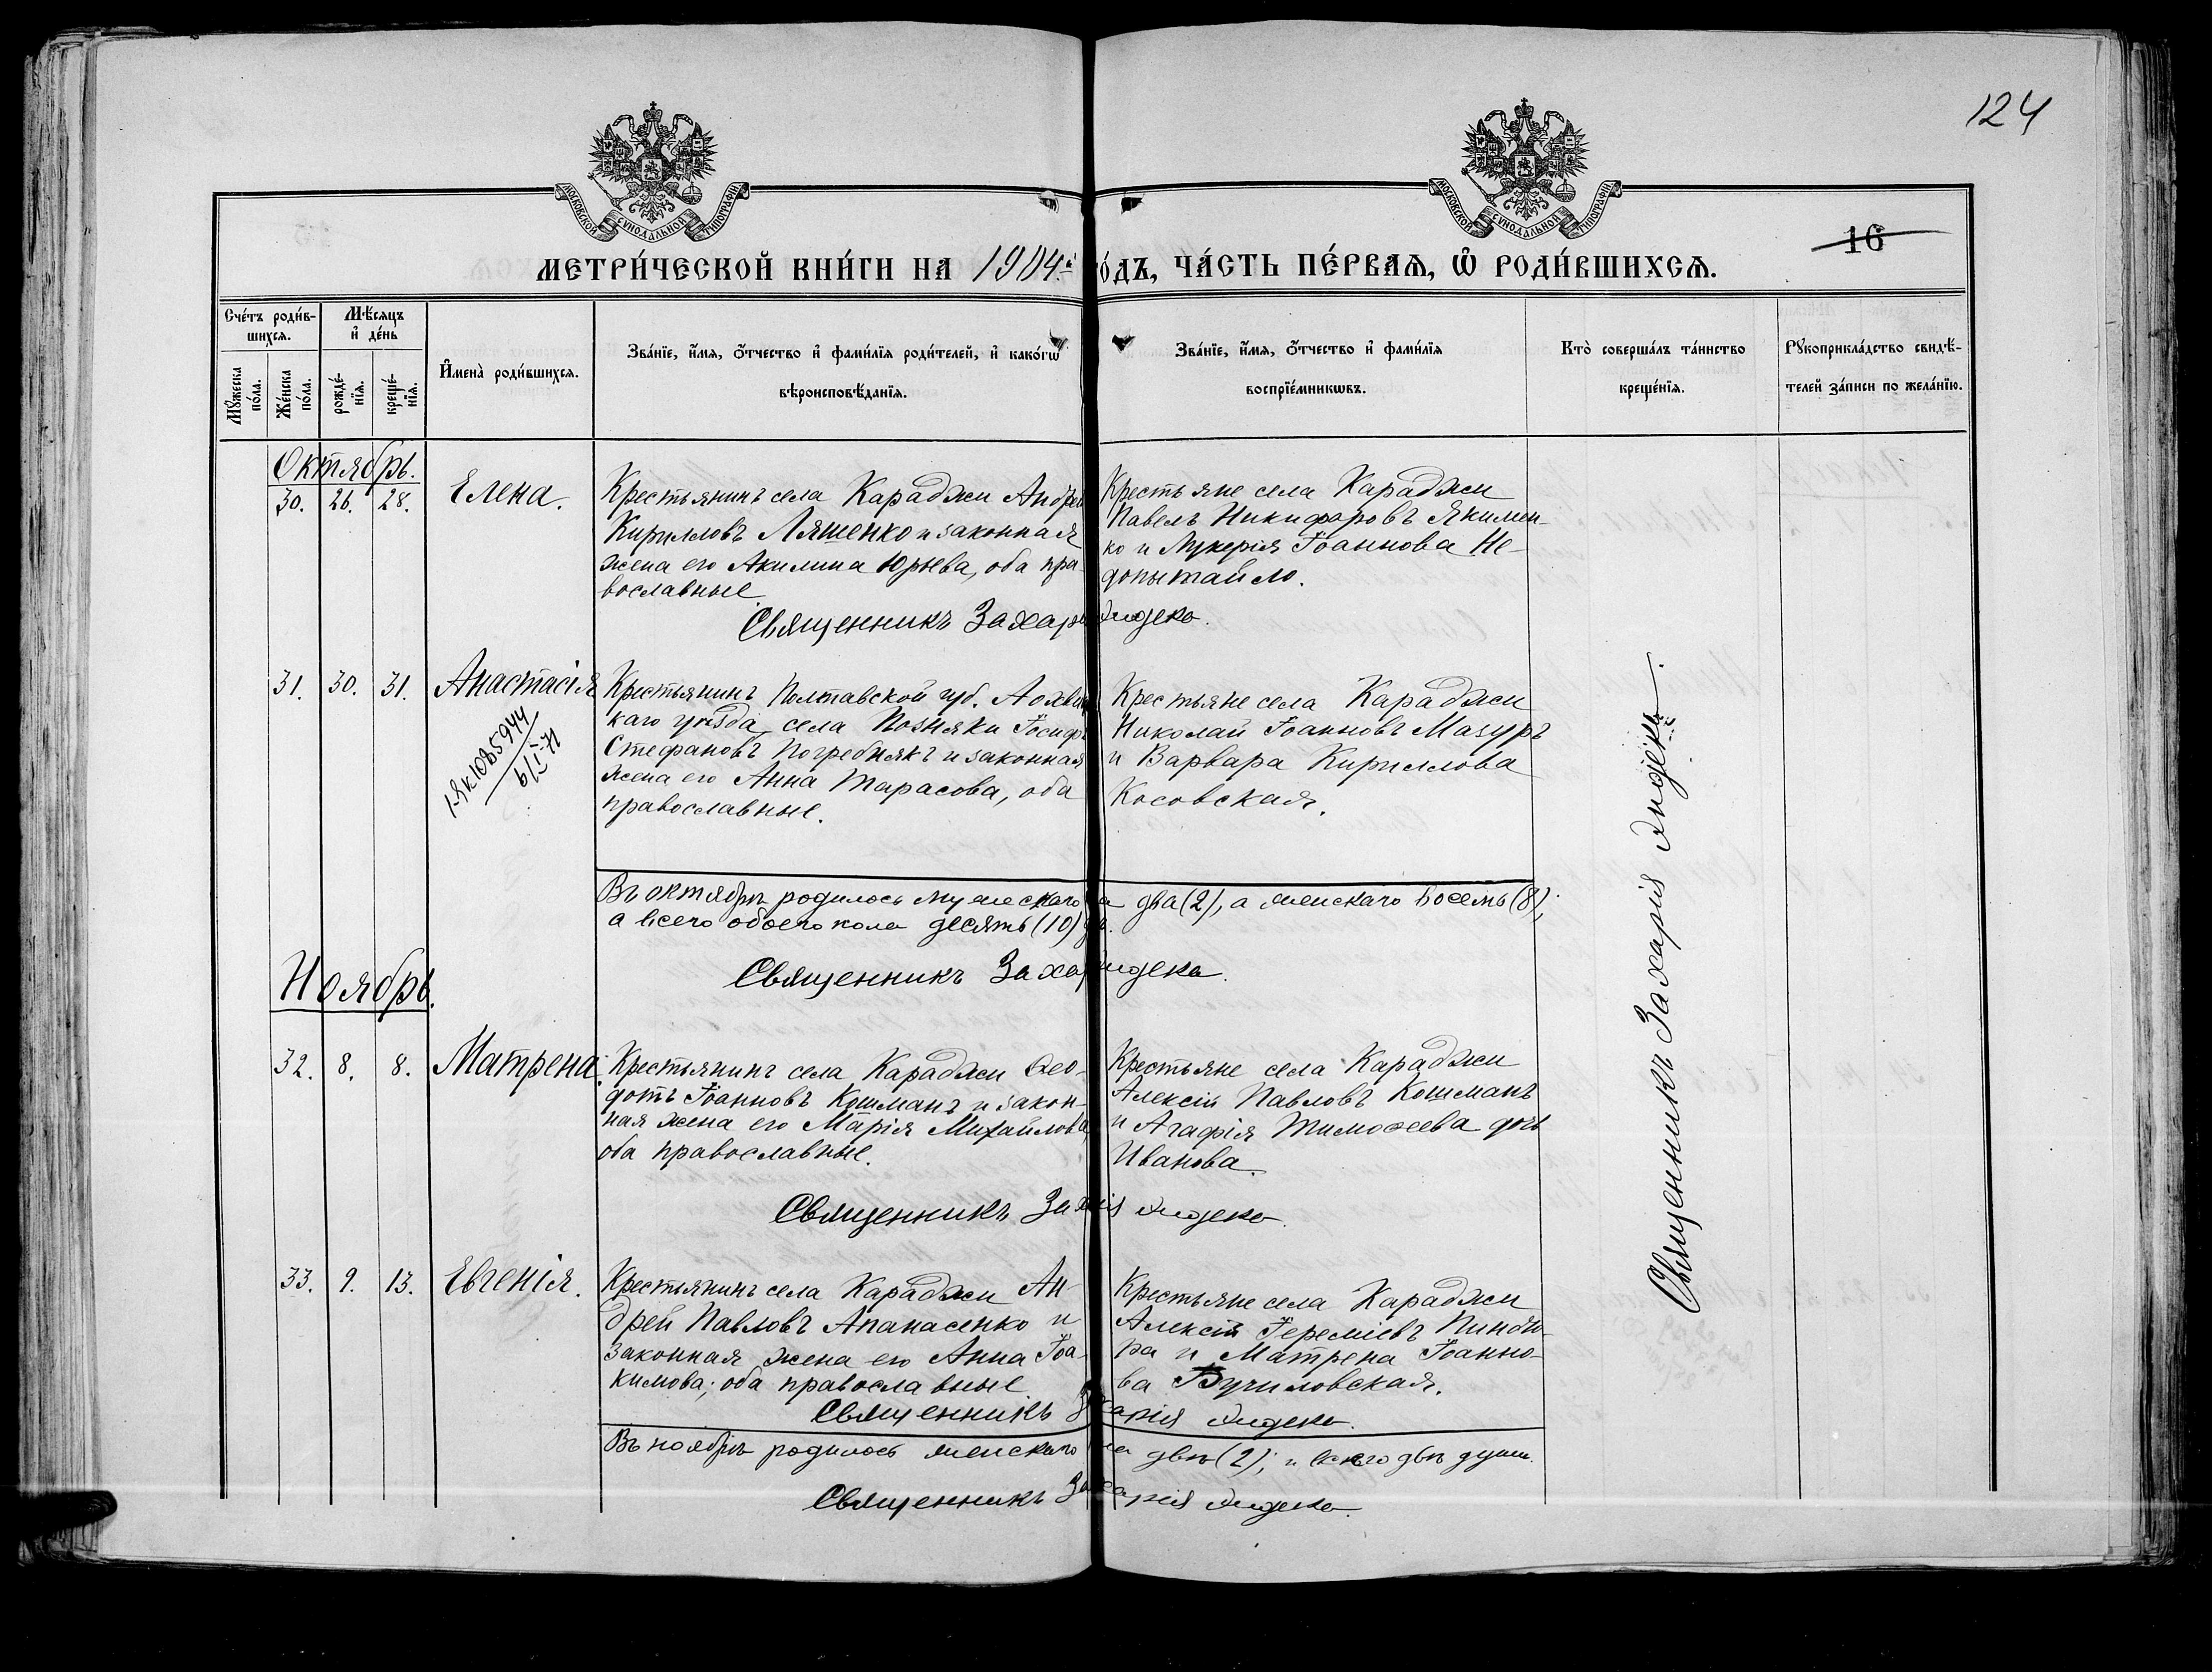 124
МОСКОВСКОЙ СУНОДАЛЬНОЙ ТИПОГРАФІИ
МОСКОВСКОЙ СУНОДАЛЬНОЙ ТИПОГРАФІИ
16
МЕТРИ́ЧЕСКОЙ КНИ́ГИ НА 1904.й
О́ДЪ, ЧА́СТЬ ПЕ́РВАѦ, Ѡ҆ РОДИ́ВШИХСѦ.
Сче́тъ роди́в-
шихсѧ.
Мѣ́сѧцъ
и҆ де́нь
Мꙋ́жеска
по́ла.
Же́нска
по́ла.
рожде́-
нїѧ.
креще́-
нїѧ.
И҆мена̀ роди́вшихсѧ.
Зва́нїе, и҆́мѧ, ѻ҆́тчество и҆ фами́лїѧ роди́телей, и҆ како́гѡ
вѣроисповѣ́данїѧ.
Зва́нїе, и҆́мѧ, ѻ҆́тчество и҆ фами́лїѧ
воспрїе́мникѡвъ.
Кто̀ соверша́лъ та́инство
креще́нїѧ.
Рꙋкоприкла́дство свидѣ́-
телей за́писи по жела́нїю.
Октябрь.
30. 26. 28. Елена.
Крестьянинъ села Караджи Андрей
Кирилловъ Ляшенко и законная
жена его Акилина Юрьева, оба пра-
вославные
Крестьяне села Караджи
Павелъ Никифоровъ Якимен-
ко и Лукерія Іоаннова Не-
допытайло.
Священникъ Захарія
31. 30. 31. Анастасія
I-ЯК 1085944
6/I-71
Крестьянинъ Полтавской губ. Лохвиц
каго уѣзда, села Позняки Іосифъ
Стефановъ Погребнякъ и законная
жена его Анна Тарасова, оба
православные.
Крестьяне села Караджи
Николай Іоанновъ Мазуръ
и Варвара Кириллова
Косовская.
Въ октябрѣ родилось мужескаго два (2), а женскаго восемь (8);
а всего обоего пола десять (10)
Священникъ Захарія
Ноябрь.
32. 8. 8. Матрена.
Крестьянинъ села Караджи Ѳео-
дотъ Іоанновъ Кошманъ и закон-
ная жена его Марія Михайлова,
оба православные.
Крестьяне села Караджи
Алексій Павловъ Кошманъ
и Агафія Тимоѳеева дочь
Иванова.
Священникъ Захарія
33. 9. 13. Евгенія.
Крестьянинъ села Караджи Ан-
дрей Павловъ Апанасенко и
законная жена его Анна Іоа-
кимова; оба православные
Крестьяне села Караджи
Алексій Іереміевъ Пинди-
ра и Матрена Іоанно-
ва Бучиловская.
Священникъ Захарія
Въ ноябрѣ родилось женскаго двѣ (2); и всего двѣ души.
Священникъ Захарія
Священникъ Захарія